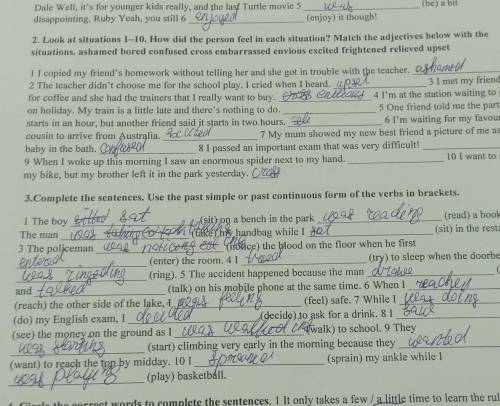 Dale Well, it's for younger kids really, and the last Turtle movie 5 was (be) a bit
disappointing. Ruby Yeah, you still 6 enjoyed (enjoy) it though!
2. Look at situations 1–10. How did the person feel in each situation? Match the adjectives below with the
situations. ashamed bored confused cross embarrassed envious excited frightened relieved upset
1 I copied my friend's homework without telling her and she got in trouble with the teacher. ashamed
2 The teacher didn't choose me for the school play. I cried when I heard. upset 3 I met my friend
for coffee and she had the trainers that I really want to buy. envious 4 I'm at the station waiting to
on holiday. My train is a little late and there's nothing to do. 5 One friend told me the part
starts in an hour, but another friend said it starts in two hours. 6 I'm waiting for my favou
cousin to arrive from Australia. excited 7 My mum showed my new best friend a picture of me as
baby in the bath. confused 8 I passed an important exam that was very difficult!
9 When I woke up this morning I saw an enormous spider next to my hand. 10 I want to
my bike, but my brother left it in the park yesterday. cross
3.Complete the sentences. Use the past simple or past continuous form of the verbs in brackets.
1 The boy sat (sit) on a bench in the park was reading (read) a book
The man was (take) my handbag while I sat (sit) in the resta
3 The policeman was (notice) the blood on the floor when he first
entered (enter) the room. 4 I (try) to sleep when the doorbe
(ring). 5 The accident happened because the man drove
and talked (talk) on his mobile phone at the same time. 6 When I reached
(reach) the other side of the lake, I was feeling (feel) safe. 7 While I was doing
(do) my English exam, I decided (decide) to ask for a drink. 8 I
(see) the money on the ground as I was (walk) to school. 9 They
was starting (start) climbing very early in the morning because they wanted
(want) to reach the top by midday. 10 I sprained (sprain) my ankle while I
was playing (play) basketball.
Circle the correct words to complete the sentences. 1 It only takes a few / a little time to learn the ru